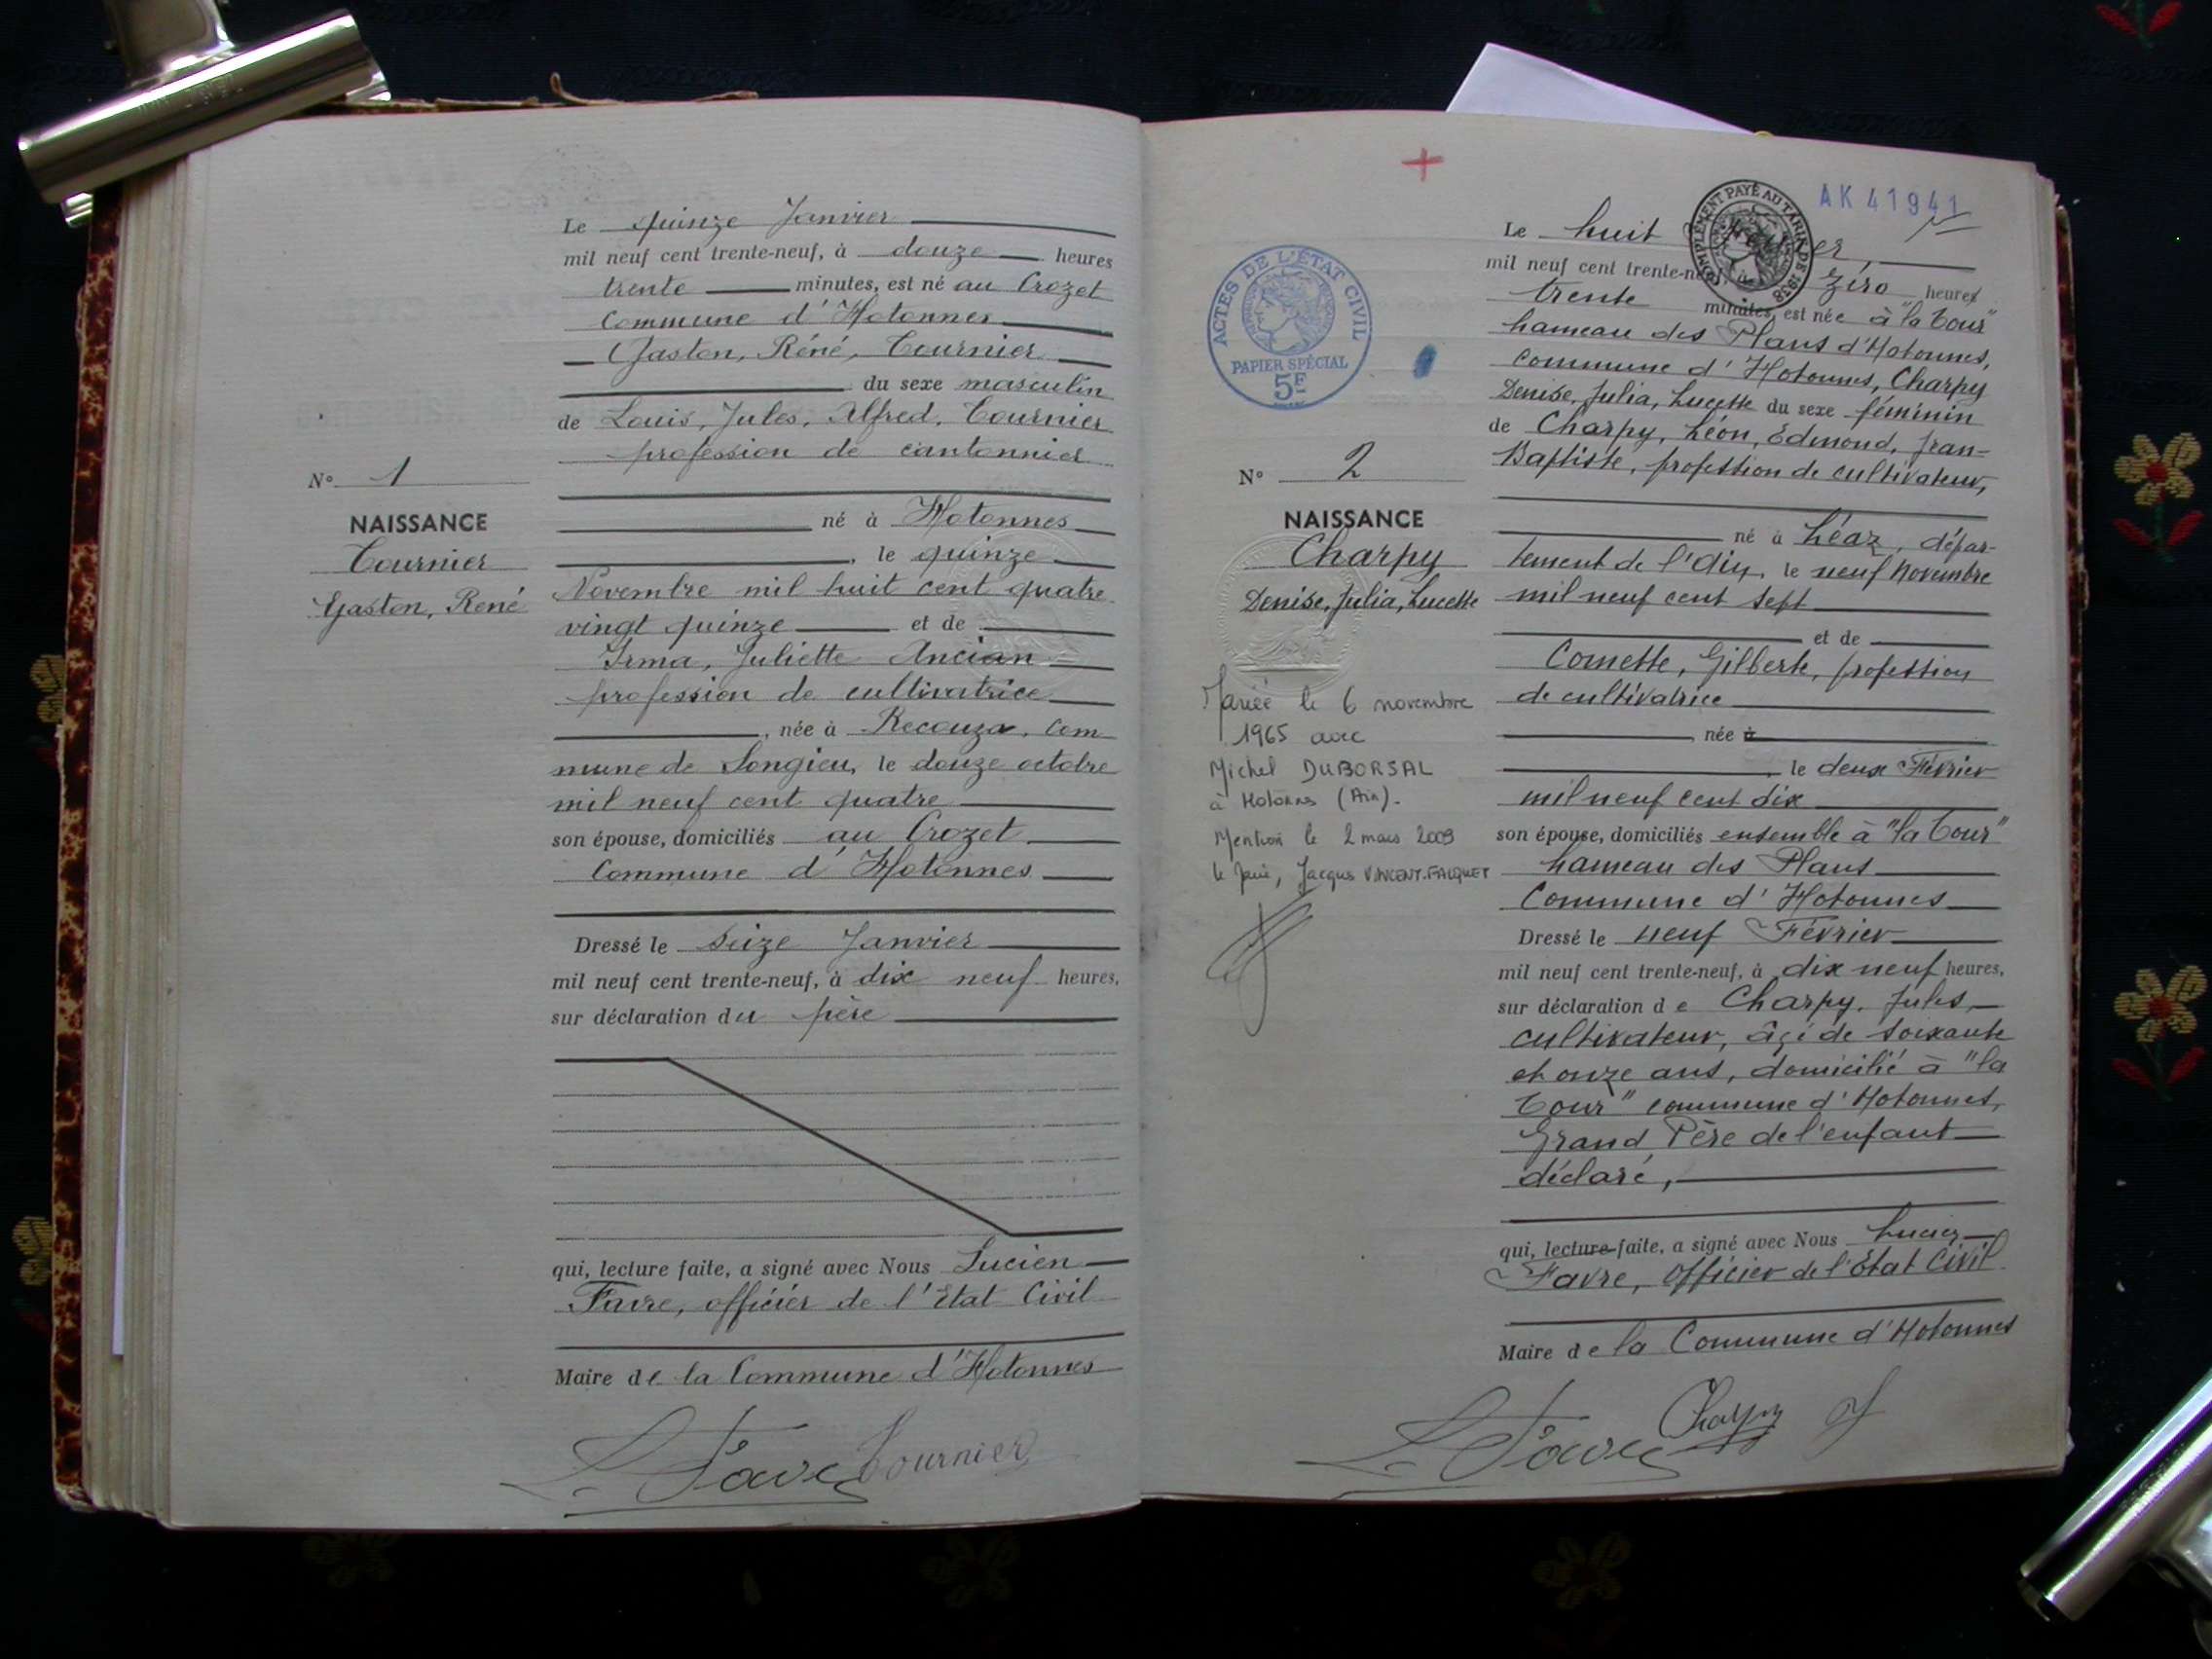 Le quinze Janvier
mil neuf cent trente-neuf, à douze heures
trente minutes, est né au Crozet
Commune d'Hotonnes
Gaston, Réné, Tournier
du sexe masculin
de Louis, Jules, Alfred, Tournier
profession de cantonnier
N° 1
NAISSANCE
Tournier
Gaston, René
né à Hotonnes
, le quinze
Novembre mil huit cent quatre
vingt quinze et de
Irma, Juliette Ancian
profession de cultivatrice
, née à Recouza, com
mune de Songieu, le douze octobre
mil neuf cent quatre
son épouse, domiciliés au Crozet
Commune d'Hotonnes
Dressé le Seize Janvier
mil neuf cent trente-neuf, à dix neuf heures,
sur déclaration du père
qui, lecture faite, a signé avec Nous Lucien
Favre, officiér de l'Etat Civil
Maire de la Commune d'Hotonnes
L. Favre Tournier
AK 41941
COMPLÉMENT PAYÉ AU TARIF DE 1938
ACTES DE L'ÉTAT CIVIL
PAPIER SPÉCIAL
5F
Le huit
mil neuf cent trente-neuf, à ziro heures
trente minutes, est née à "la Tour"
hameau des Plans d'Hotonnes,
commune d'Hotonnes, Charpy
Denise, Julia, Lucette du sexe féminin
de Charpy, Léon, Edmond, Jean-
Baptiste, profession de cultivateur,
N° 2
NAISSANCE
Charpy
Denise, Julia, Lucette
né à Léaz, dépar-
tement de l'Ain, le neuf Novembre
mil neuf cent sept
et de
Comette, Gilberte, profession
de cultivatrice
née à
, le deux Février
mil neuf cent dix
son épouse, domiciliés ensemble à "la Tour"
hameau des Plans
Commune d'Hotonnes
Dressé le neuf Février
mil neuf cent trente-neuf, à dix neuf heures,
sur déclaration de Charpy, Jules,
cultivateur, âgé de soixante
et onze ans, domicilié à "la
Tour" commune d'Hotonnes,
Grand Père de l'enfant
déclaré,
qui, lecture faite, a signé avec Nous Lucien
Favre, Officier de l'Etat Civil
Maire de la Commune d'Hotonnes
L. Favre Charpy J
Mariée le 6 novembre
1965 avec
Michel DUBORSAL
à Hotonnes (Ain).
Mention le 2 mars 2009
le Maire, Jacques VINCENT-FALQUET